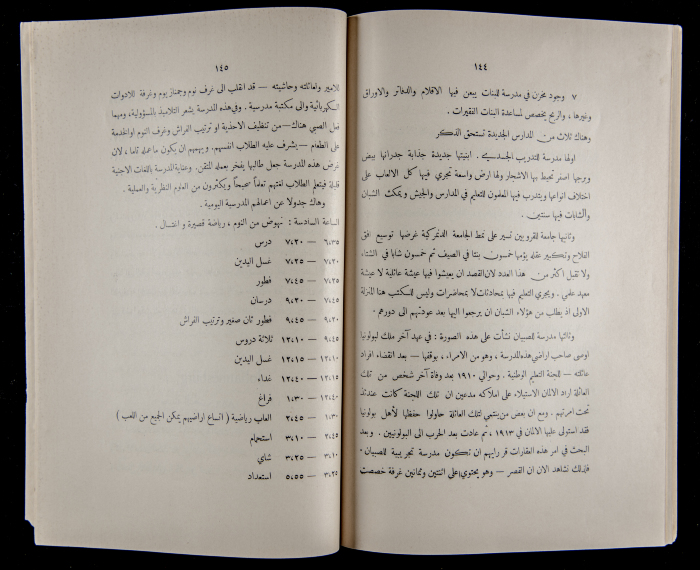 ١٤٤
٧ وجود مخزن في مدرسة للبنات يبعن فيها الاقلام والدفاتر والاوراق
وغيرها ، والربح يخصص لمساعدة البنات الفقيرات .
وهناك ثلاث من المدارس الجديدة تستحق الذكر
اولها مدرسة للتدريب الجسدي . ابنيتها جديدة جذابة جدرانها بيض
وبرجها اصفر تحيط بها الاشجار ولها ارض واسعة تجري فيها كل الالعاب على
اختلاف انواعها ويتدرب فيها المعلمون للتعليم في المدارس والجيش ويمكث الشبان
والشابات فيها سنتين .
وثانيها جامعة للقرويين تسير على نمط الجامعة الدنمركية غرضها توسيع افق
الفلاح وتكبير عقله يؤمها خمسون بنتا في الصيف ثم خمسون شابا في الشتاء
ولا تقبل اكثر من هذا العدد لان القصد ان يعيشوا فيها عيشة عائلية لا عيشة
معهد علمي . ويجري التعليم فيها بمحادثات لا بمحاضرات وليس للكتب هنا المنزلة
الاولى اذ يطلب من هؤلاء الشبان ان يرجعوا اليها بعد عودتهم الى دورهم .
وثالثها مدرسة للصبيان نشأت على هذه الصورة : في عهد آخر ملك لبولونيا
اوصى صاحب اراضي هذه المدرسة ، وهو من الامراء ، بوقفها – بعد انقضاء افراد
عائلته – للجنة التعليم الوطنية . وحوالي ١٩١٠ بعد وفاة آخر شخص من تلك
العائلة اراد الالمان الاستيلاء على املاكه مدعين ان تلك اللجنة كانت عندئذ
تحت امرتهم . ومع ان بعض من ينتمي لتلك العائلة حاولوا حفظها لأهل بولونيا
فقد استولى عليها الالمان في ١٩١٣ ، ثم عادت بعد الحرب الى البولونيين . وبعد
البحث في امر هذه العقارات قر رايهم ان تكون مدرسة تجريبية للصبيان .
فلذلك نشاهد الان ان القصر – وهو يحتوي على اثنتين وثمانين غرفة خصصت
١٤٥
للامير ولعائلته وحاشيته – قد انقلب الى غرف نوم وجمناز يوم وغرفة للادوات
الكهربائية والى مكتبة مدرسية . وفي هذه المدرسة يشعر التلاميذ بالمسؤولية، ومهما
فعل الصبي هناك – من تنظيف الاحذية او ترتيب الفراش وغرف النوم او الخدمة
على الطعام – يشرف عليه الطلاب انفسهم ، ويهمهم ان يكون ما عمله تاما ، لان
غرض هذه المدرسة جعل طالبها يفخر بعمله المتقن. وعناية المدرسة باللغات الاجنبية
قليلة فيتعلم الطلاب لغتهم تعلماً صحيحاً ويكثرون من العلوم النظرية والعملية .
وهاك جدولا عن اعمالهم المدرسية اليومية .
الساعة السادسة : نهوض من النوم ، رياضة قصيرة و اغتسال .
٦،٣٥ – ٧،٢٠ درس
٧،٢٠ – ٧،٢٥ غسل اليدين
٧،٢٥ – ٧،٤٥ فطور
٧،٤٥ – ٩،٢٠ درسان
٩،٢٠ – ٩،٤٥ فطور ثان صغير وترتيب الفراش
٩،٤٥ – ١٢،١٠ ثلاثة دروس
١٢،١٠ – ١٢،١٥ غسل اليدين
١٢،١٥ – ١٢،٤٠ غداء
١٢،٤٠ – ١،٣٠ فراغ
١،٣٠ – ٢،٤٥ العاب رياضية ( اتساع اراضيهم يمكن الجميع من اللعب )
٢،٤٥ – ٣،١٠ استحمام
٣،١٠ – ٣،٢٥ شاي
٣،٢٥ – ٥،٥٥ استعداد